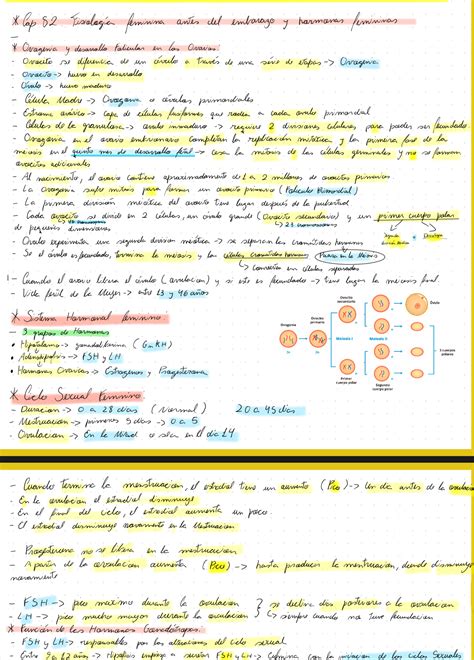 * Cap. 82 Fisiología femenina antes del embarazo y hormonas femeninas
* Ovogenia y desarrollo folicular en los Ovarios:
- Ovocito se diferencia de un óvulo a través de una serie de etapas -> Ovogenia
- Ovocito -> huevo en desarrollo
- Óvulo -> huevo maduro
- Célula Madre -> Ovogonia o óvulos primordiales
- Estroma ovárico -> Capa de células fusiformes que rodea a cada óvulo primordial
- Células de la granulosa -> óvulo inmaduro -> requiere 2 divisiones celulares para poder ser fecundado
- Ovogonia en el ovario embrionario completan la replicación mitótica y la primera fase de la
meiosis en el quinto mes de desarrollo fetal -> cesa la mitosis de las células germinales y no se forman
ovocitos adicionales
- Al nacimiento, el ovario contiene aproximadamente de 1 a 2 millones de ovocitos primarios
- La Ovogonia sufre mitosis para formar un ovocito primario (Folículo Primordial)
- La primera división meiótica del ovocito tiene lugar después de la pubertad
- Cada ovocito se divide en 2 células, un óvulo grande (Ovocito secundario) y un primer cuerpo polar
de pequeñas dimensiones
-> 23 cromosomas
- Óvulo experimenta una segunda división meiótica -> se separan las cromátidas hermanas
- Si el óvulo es fecundado, termina la meiosis y las células cromátidas hermanas Pausa en la Meiosis
-> Convierten en células separadas
- Cuando el ovario libera el óvulo (ovulación) y si este es fecundado -> tiene lugar la meiosis final.
- Vida fértil de la Mujer -> entre 13 y 46 años
* Sistema Hormonal femenino:
- 3 grupos de Hormonas
• Hipotálamo -> gonadoliberina (GnRH)
• Adenohipófisis -> FSH y LH
• Hormonas Ováricas -> Estrógenos y Progesterona
Ovogonia
Ovocito primario
Ovocito secundario
Óvulo
Meiosis I
Meiosis II
Primer cuerpo polar
Segundo cuerpo polar
3 cuerpos polares
* Ciclo Sexual Femenino
- Duración -> 0 a 28 días (Normal) 20 a 45 días
- Menstruación -> primeros 5 días -> 0 a 5
- Ovulación -> En la Mitad o sea en el día 14
- Cuando termina la menstruación, el estradiol tiene un aumento (Pico) -> Un día antes de la ovulación
- En la ovulación el estradiol disminuye
- En el final del ciclo, el estradiol aumenta un poco.
- El estradiol disminuye nuevamente en la Menstruación
- Progesterona no se libera en la menstruación
- A partir de la ovulación aumenta (Pico) -> hasta producir la menstruación, donde disminuye
nuevamente
- FSH -> pico máximo durante la ovulación
- LH -> pico mucho mayor durante la ovulación
} se define días posteriores a la ovulación
-> siempre cuando no tuvo fecundación
* Función de las Hormonas Gonadótropas
- FSH y LH -> responsables por las alteraciones del ciclo sexual
- Entre 9 a 12 años -> Hipófisis empieza a secretar FSH y LH -> Culmina con la iniciación de los Ciclos Sexuales